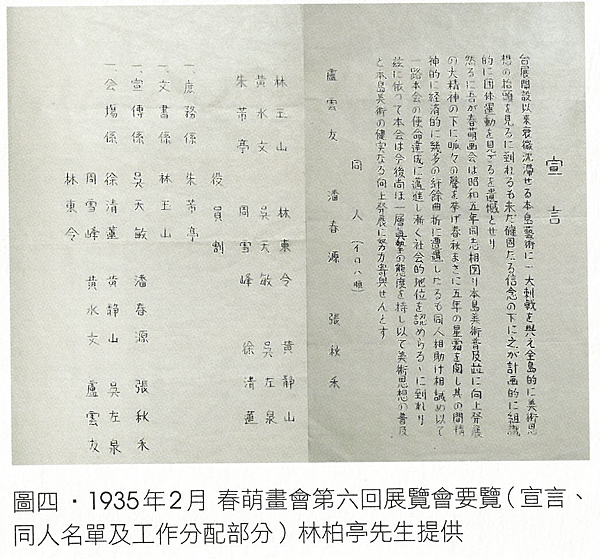 宣言
台展開設以来衰微沈滞せる本島藝術に一大刺戟を與え全島的に美術思
想の抬頭を見るに到れるも未だ健固たる信念の下に之が計画的に組織
的に団体運動を見ざるを遺憾とせり
然るに吾が春萌画会は昭和五年同志相図り本島美術普及竝に向上発展
の大精神の下に呱々の聲を挙げ春秋まさに五年の星霜を閲し其の間精
神的に経済的に幾多の紆餘曲折に遭遇したるも同人相助け相誡め以て
一路本会の使命達成に邁進し漸く社会的地位を認めらるゝに到れり
茲に依って本会は今後尚ほ一層眞摯の態度を持し以て美術思想の普及
と本島美術の健実なる向上発展に努力寄與せんとす
同人(イロハ順)
盧雲友 潘春源 張秋禾
林玉山 林東令 黄静山
黄水文 吳天敏 吳左泉
朱芾亭 周雪峰 徐清蓮
役員割
一庶務係 朱芾亭
一文書係 林玉山
一宣傳係 吳天敏 潘春源 張秋禾
一会場係 徐清蓮 黄静山 吳左泉
周雪峰 黄水文 盧雲友
林東令
圖四・1935年2月 春萌畫會第六回展覽會要覽(宣言、
同人名單及工作分配部分)林柏亭先生提供